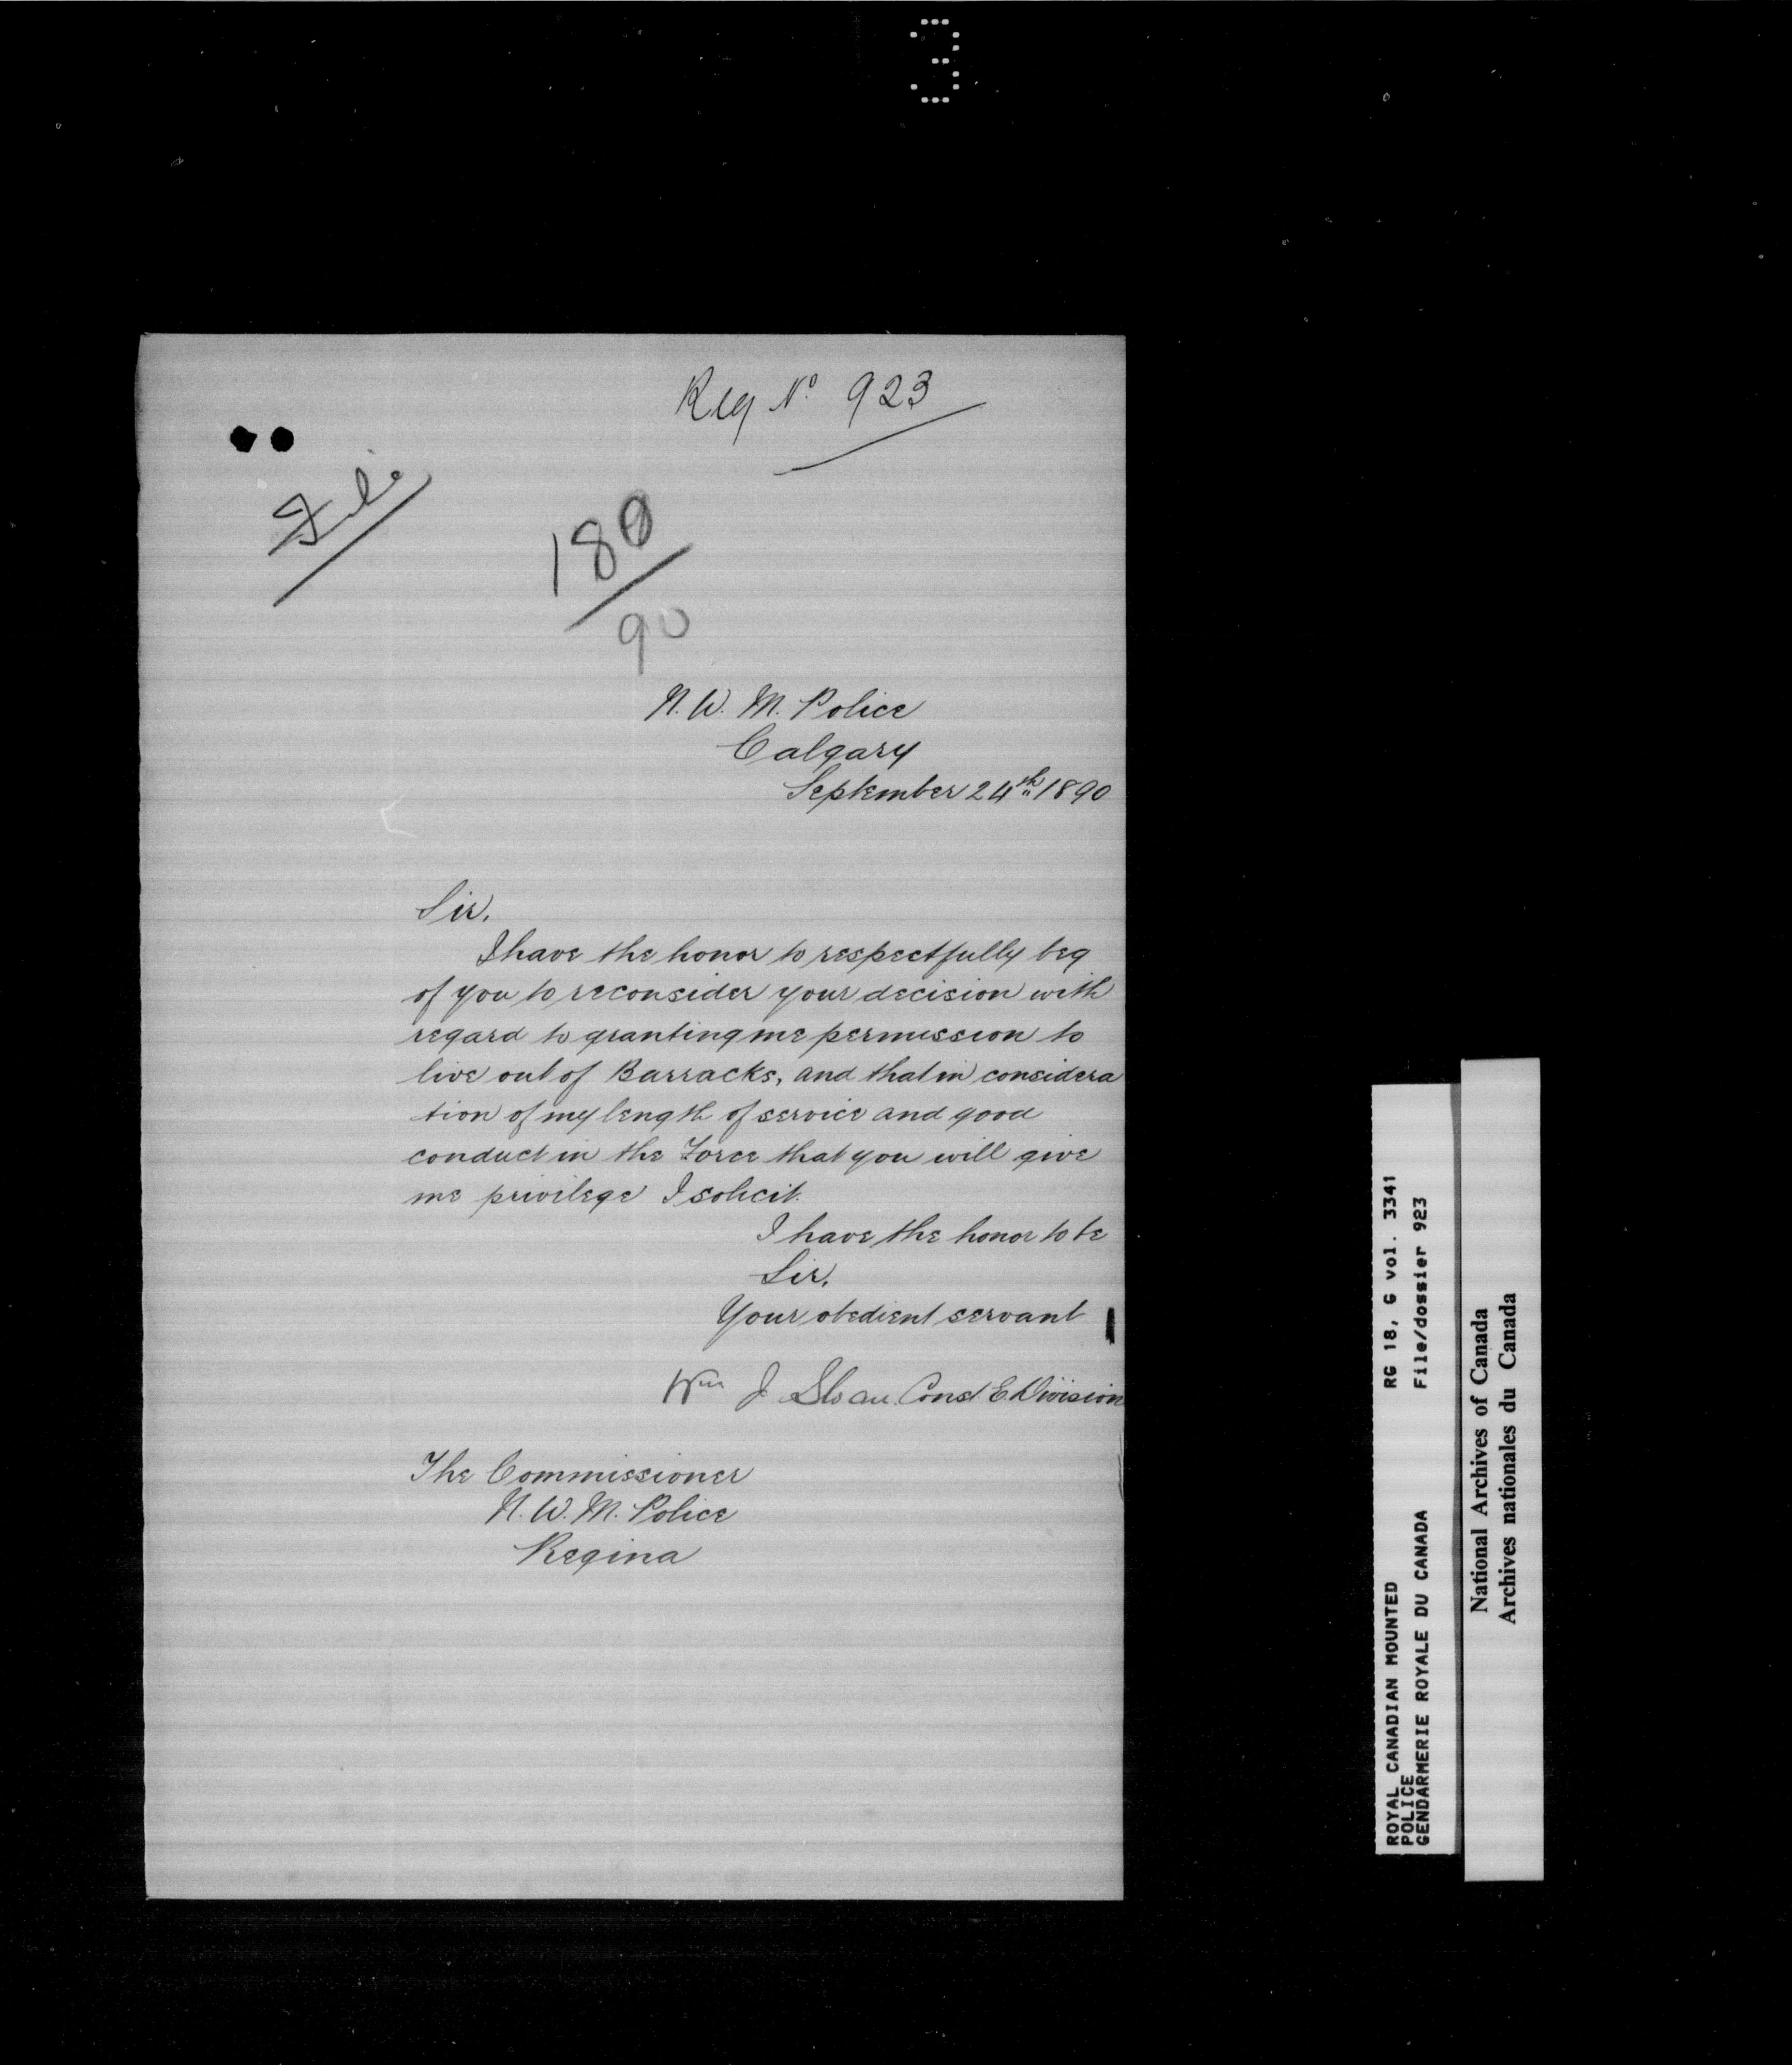 3
Reg No 923
File
180
90
N. W. M. Police
Calgary
September 24th 1890
Sir,
I have the honor to respectfully beg
of you to reconsider your decision with
regard to granting me permission to
live out of Barracks, and that in considera
tion of my length of service and good
conduct in the Force that you will give
me privilege I solicit.
I have the honor to be
Sir,
Your obedient servant
Wm J Sloan. Const E. Division
The Commissioner
N. W. M. Police
Regina
ROYAL CANADIAN MOUNTED
POLICE
GENDARMERIE ROYALE DU CANADA
RG 18, G vol. 3341
File/dossier 923
National Archives of Canada
Archives nationales du Canada